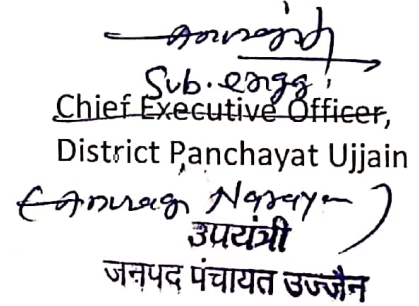 Sub. engg.
Chief Executive Officer,
District Panchayat Ujjain
(Anurag Narayan)
उपयंत्री
जनपद पंचायत उज्जैन